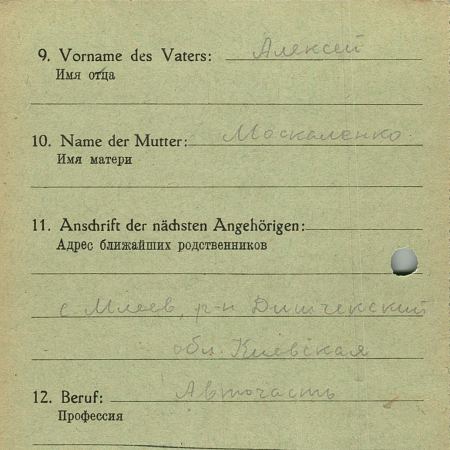 9. Vorname des Vaters: Алексей
Имя отца
10. Name der Mutter: Москаленко
Имя матери
11. Anschrift der nächsten Angehörigen:
Адрес ближайших родственников
с. Млеев, р-н
обл. Киевская
12. Beruf: Авточасть
Профессия